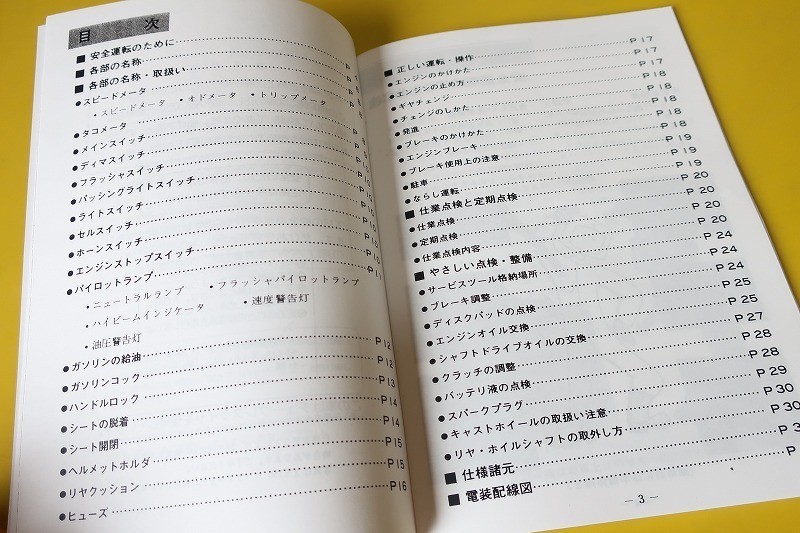 目 次
■ 安全運転のために
■ 各部の名称
■ 各部の名称・取扱い
●スピードメータ
・スピードメータ ・オドメータ ・トリップメータ
●タコメータ
●メインスイッチ
●ディマスイッチ
●フラッシャスイッチ
●パッシングライトスイッチ
●ライトスイッチ
●セルスイッチ
●ホーンスイッチ
●エンジンストップスイッチ
●パイロットランプ P11
・ニュートラルランプ ・フラッシャパイロットランプ
・ハイビームインジケータ ・速度警告灯
・油圧警告灯
●ガソリンの給油 P12
●ガソリンコック P12
●ハンドルロック P13
●シートの脱着 P14
●シート開閉 P14
●ヘルメットホルダ P15
●リヤクッション P15
●ヒューズ P16
■ 正しい運転・操作 P17
●エンジンのかけかた P17
●エンジンの止め方 P17
●ギヤチェンジ P18
●チェンジのしかた P18
●発進 P18
●ブレーキのかけかた P18
●エンジンブレーキ P18
●ブレーキ使用上の注意 P19
●駐車 P19
●ならし運転 P19
■ 仕業点検と定期点検 P20
●仕業点検 P20
●定期点検 P20
●仕業点検内容 P24
■ やさしい点検・整備 P24
●サービスツール格納場所 P24
●ブレーキ調整 P25
●ディスクパッドの点検 P25
●エンジンオイル交換 P27
●シャフトドライブオイルの交換 P28
●クラッチの調整 P28
●バッテリ液の点検 P29
●スパークプラグ P30
●キャストホイールの取扱い注意 P30
●リヤ・ホイルシャフトの取外し方 P3
■ 仕様諸元 P
■ 電装配線図
－3－